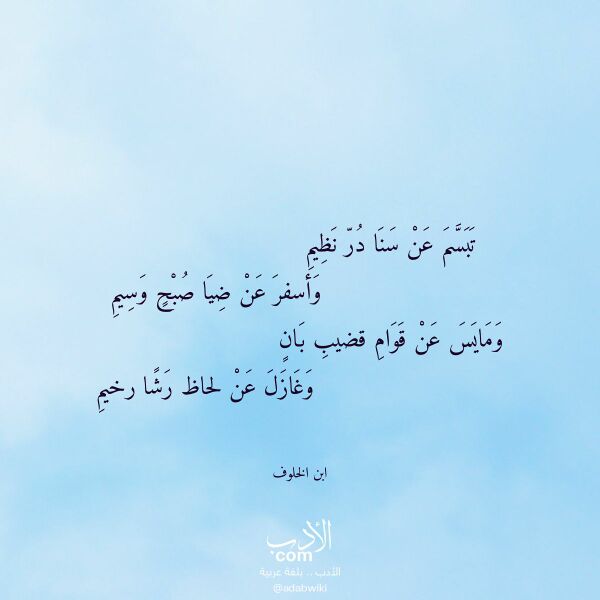 تَبَسَّمَ عَنْ سَنَا دُرّ نَظِيمِ
وَأسفرَ عَنْ ضِيَا صُبْحٍ وَسِيمِ
وَمَايَسَ عَنْ قَوَامِ قضيبِ بَانٍ
وَغَازَلَ عَنْ لحاظ رَشًا رخيمِ
ابن الخلوف
الأدب
com
الأدب .. بلغة عربية
@adabwiki